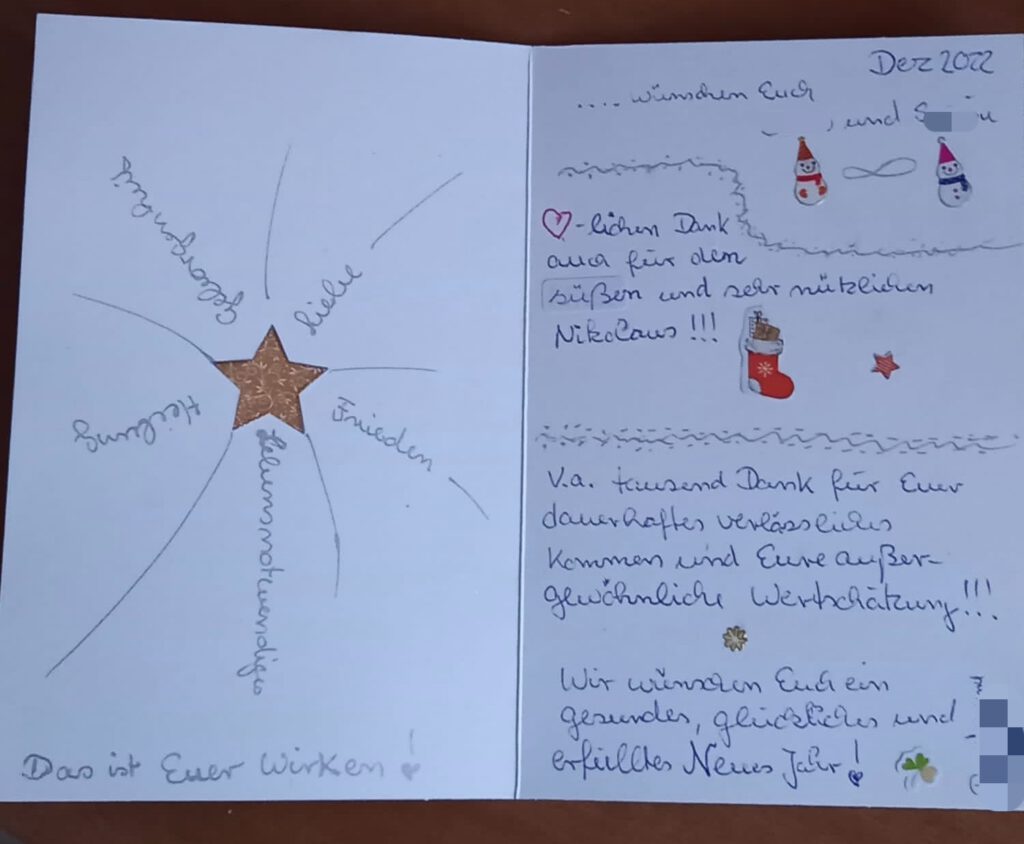 Geborgenheit
Liebe
Heilung
Frieden
Lebensnotwendiges
Das ist Euer Wirken!
Dez 2022
.... wünschen Euch
, und
-lichen Dank
auch für den
süßen und sehr nützlichen
Nikolaus !!!
V.a. tausend Dank für Euer
dauerhaftes verlässliches
Kommen und Eure außer-
gewöhnliche Wertschätzung!!!
Wir wünschen Euch ein
gesundes, glückliches und
erfülltes Neues Jahr!